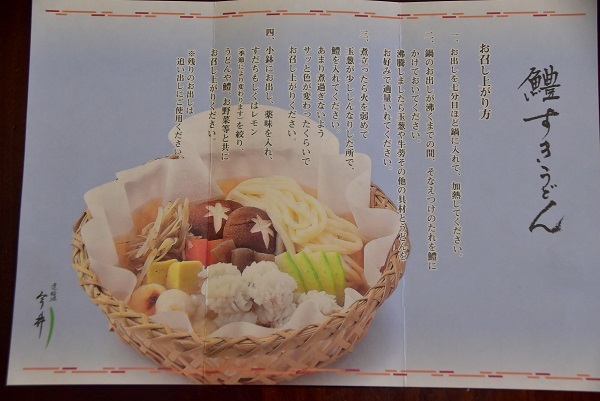 鱧すきうどん
お召し上がり方
一、お出しを七分目ほど鍋に入れて、加熱してください。
二、鍋のお出しが沸くまでの間、そなえつけのたれを鱧に
かけておいてください。
沸騰しましたら玉葱や牛蒡その他の具材とうどんを
お好みで適量いれてください。
三、煮立ったら火を弱めて
玉葱が少ししんなりした所で、
鱧を入れてください。
あまり煮過ぎないよう
サッと色が変わったくらいで
お召し上がりください。
四、小鉢にお出し、薬味を入れ、
すだちもしくはレモン
(季節により変わります)を絞り、
うどんや鱧、お野菜等と共に
お召し上がりください。
※残りのお出しは
追い出しにご使用ください。
道頓堀
今井